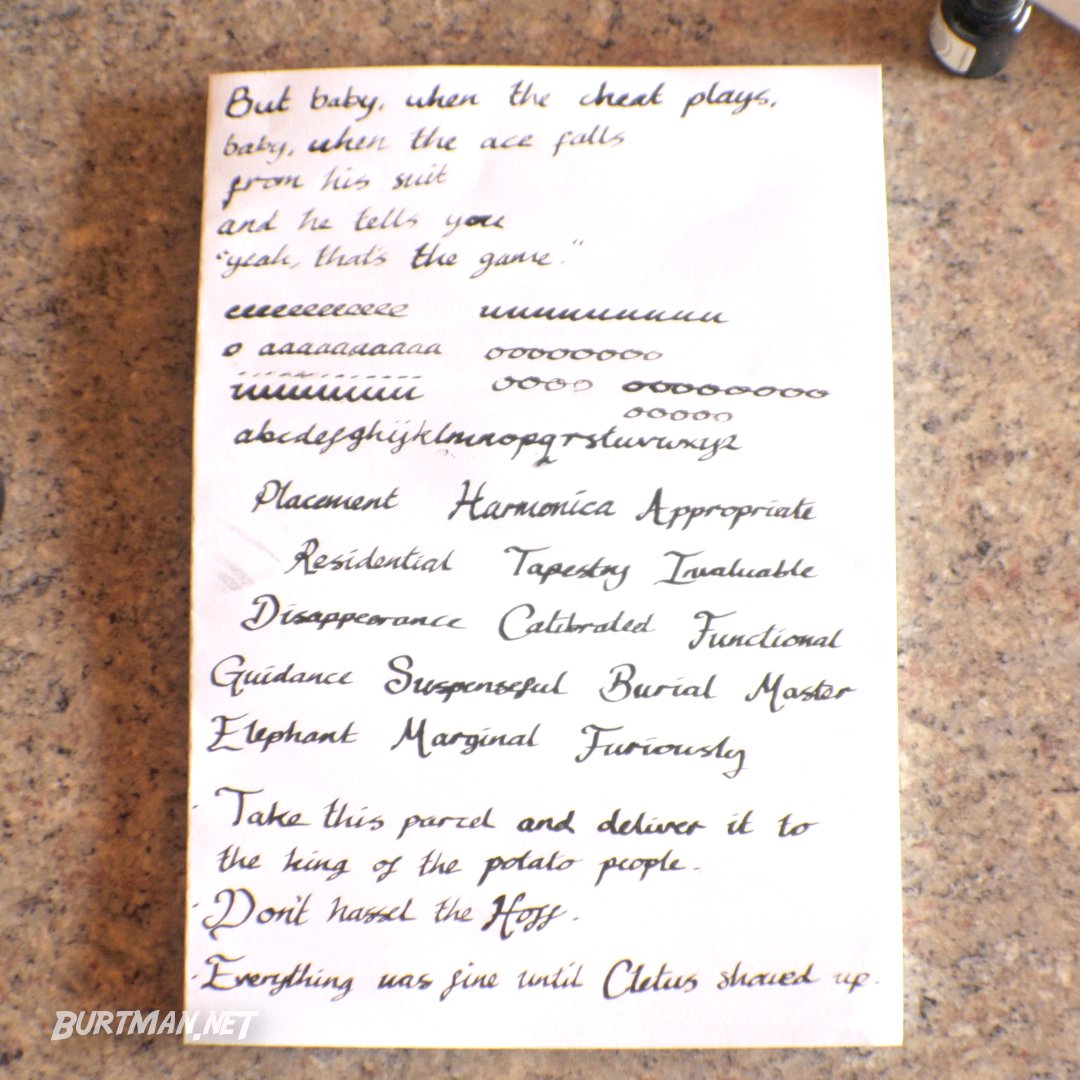 But baby, when the cheat plays,
baby, when the ace falls
from his suit
and he tells you
"yeah, that's the game."
eeeeeeeeeeee uuuuuuuuuu
o aaaaaaaaaaa oooooooo
uuuuuuuu oooo ooooooooo
ooooo
abcdefghijklmnopqrstuvwxyz
Placement Harmonica Appropriate
Residential Tapestry Invaluable
Disappearance Calibrated Functional
Guidance Suspenseful Burial Master
Elephant Marginal Furiously
· Take this parcel and deliver it to
the king of the potato people.
· Don't hassel the Hoff.
· Everything was fine until Cletus showed up.
BURTMAN.NET